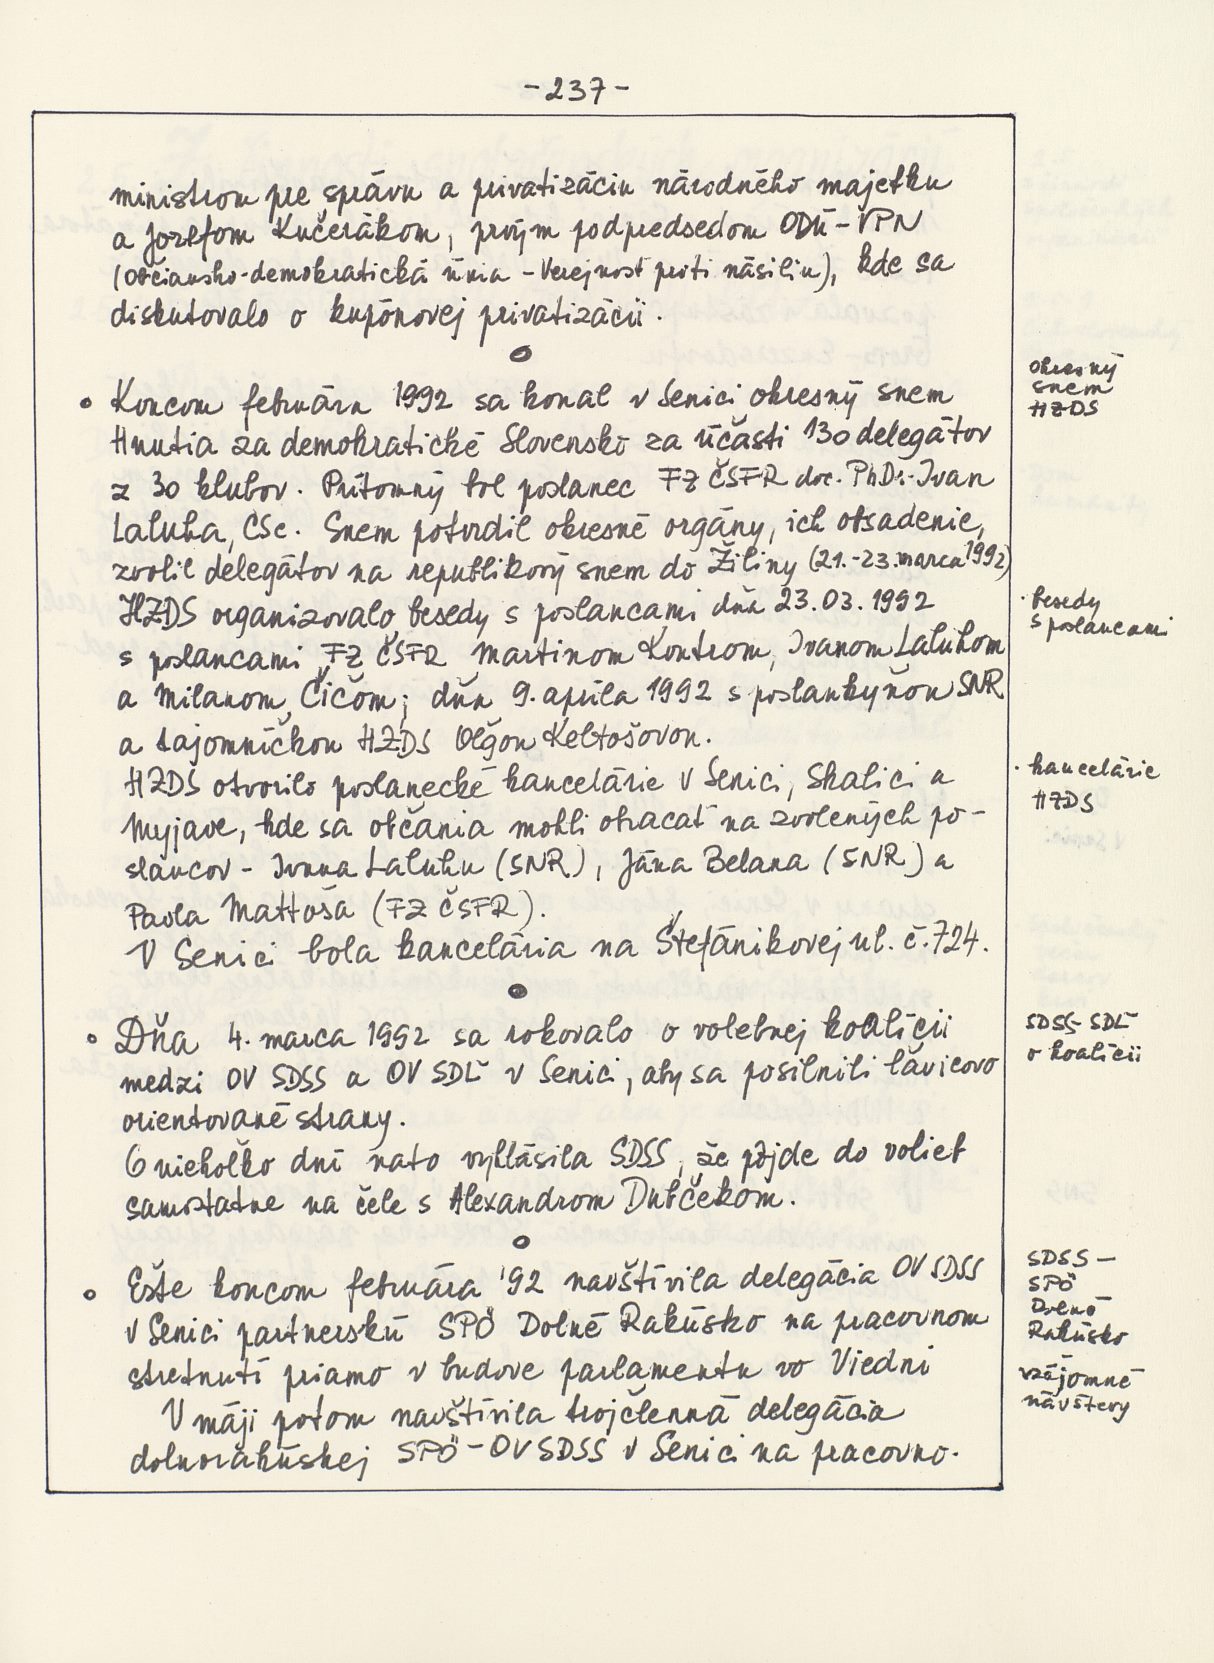 -237-
ministrom pre správu a privatizáciu národného majetku
a Jozefom Kučerákom, prvým podpredsedom ODÚ-VPN
(Občiansko-demokratická únia - Verejnosť proti násiliu), kde sa
diskutovalo o kupónovej privatizácii.
Okresný
snem
HZDS
Koncom februára 1992 sa konal v Senici okresný snem
Hnutia za demokratické Slovensko za účasti 130 delegátov
z 30 klubov. Prítomný bol poslanec FZ ČSFR doc. PhDr. Ivan
Laluha, CSc. Snem potvrdil okresné orgány, ich obsadenie,
zvolil delegátov na republikový snem do Žiliny (21.-23. marca 1992)
HZDS organizovalo besedy s poslancami dňa 23.03.1992
besedy
s poslancami
s poslancami FZ ČSFR Martinom Kontrom, Ivanom Laluhom
a Milanom Čičom; dňa 9. apríla 1992 s poslankyňou SNR
a tajomníčkou HZDS Oľgou Keltošovou.
HZDS otvorilo poslanecké kancelárie v Senici, Skalici a
kancelárie
HZDS
Myjave, kde sa občania mohli obracať na zvolených po-
slancov - Ivana Laluhu (SNR), Jána Belana (SNR) a
Pavla Mattoša (FZ ČSFR).
V Senici bola kancelária na Štefánikovej ul. č. 724.
Dňa 4. marca 1992 sa rokovalo o volebnej koalícii
SDSS SDĽ
o koalícii
medzi OV SDSS a OV SDĽ v Senici, aby sa posilnili ľavicovo
orientované strany.
O niekoľko dní nato vyhlásila SDSS, že pôjde do volieb
samostatne na čele s Alexandrom Dubčekom.
Ešte koncom februára '92 navštívila delegácia OV SDSS
SDSS -
SPÖ
Dolné
Rakúsko
vzájomné
návštevy
v Senici partnerskú SPÖ Dolné Rakúsko na pracovnom
stretnutí priamo v budove parlamentu vo Viedni
V máji potom navštívila trojčlenná delegácia
dolnorakúskej SPÖ - OV SDSS v Senici na pracovno-